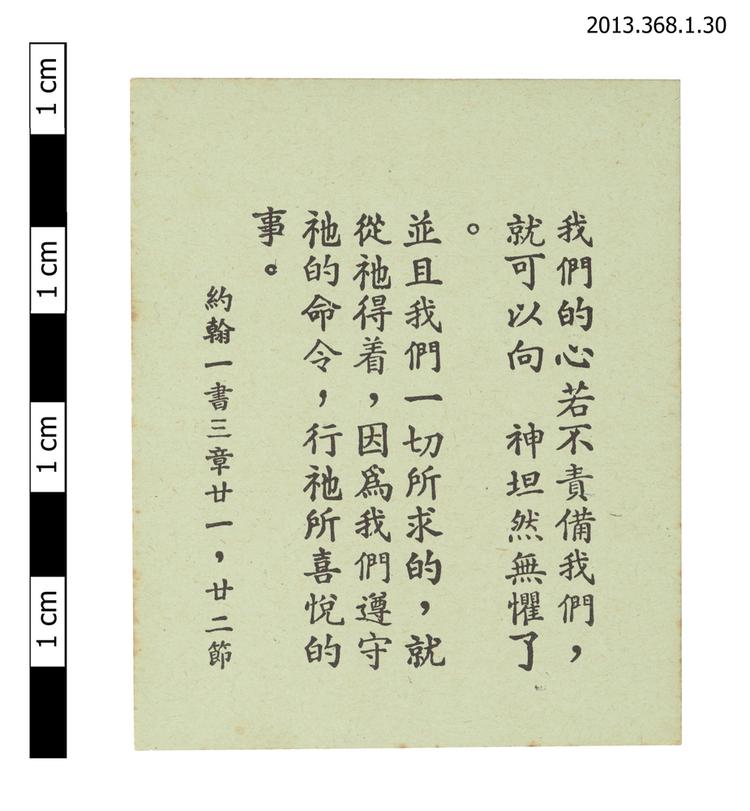 2013.368.1.30
1 cm
1 cm
1 cm
1 cm
我們的心若不責備我們，
就可以向　神坦然無懼了
。
並且我們一切所求的，就
從祂得着，因爲我們遵守
祂的命令，行祂所喜悅的
事。
約翰一書三章廿一，廿二節